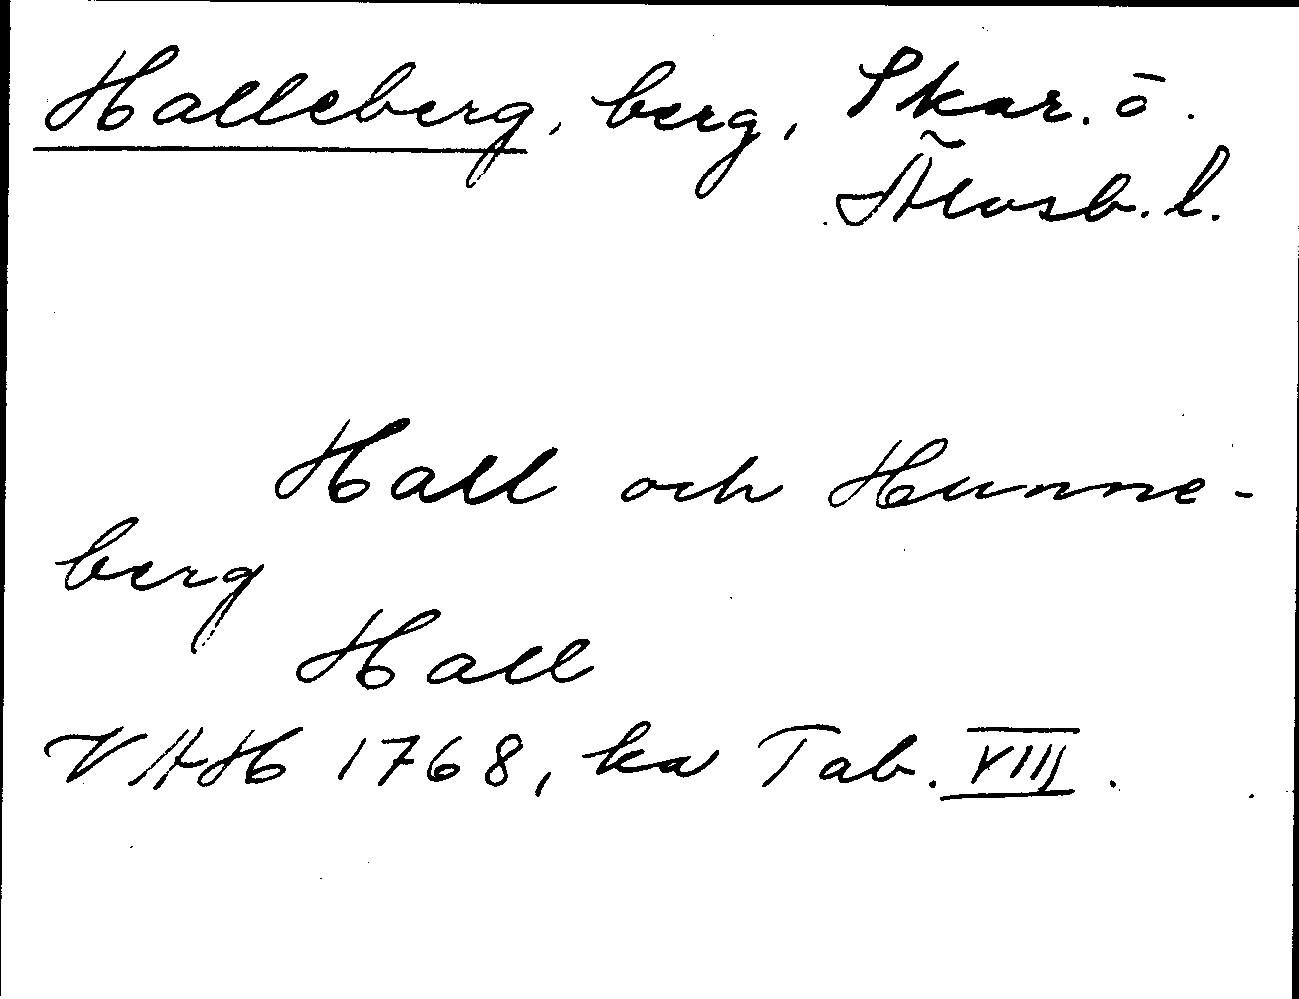 Halleberg, berg, Skar. ö.
Älvsb. l.
Hall och Hunne-
berg
Hall
VAH 1768, ka Tab. VIII.